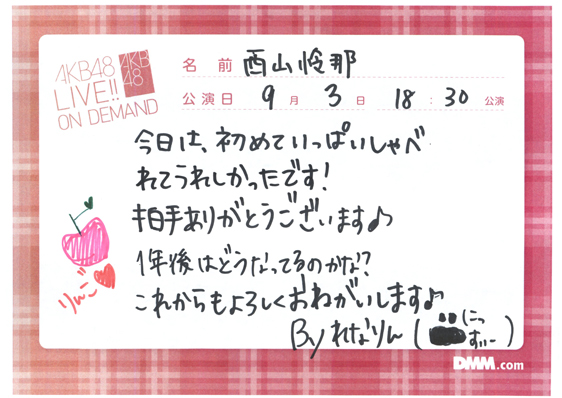 AKB48
LIVE!!
ON DEMAND
AKB
48
名 前 西山怜那
公演日 9 月 3 日 18 : 30 公演
今日は、初めていっぱいしゃべ
れてうれしかったです!
拍手ありがとうございます♪
1年後はどうなってるのかな?
これからもよろしくおねがいします♪
By れなりん(にっ
すぃー)
りんご
DMM.com